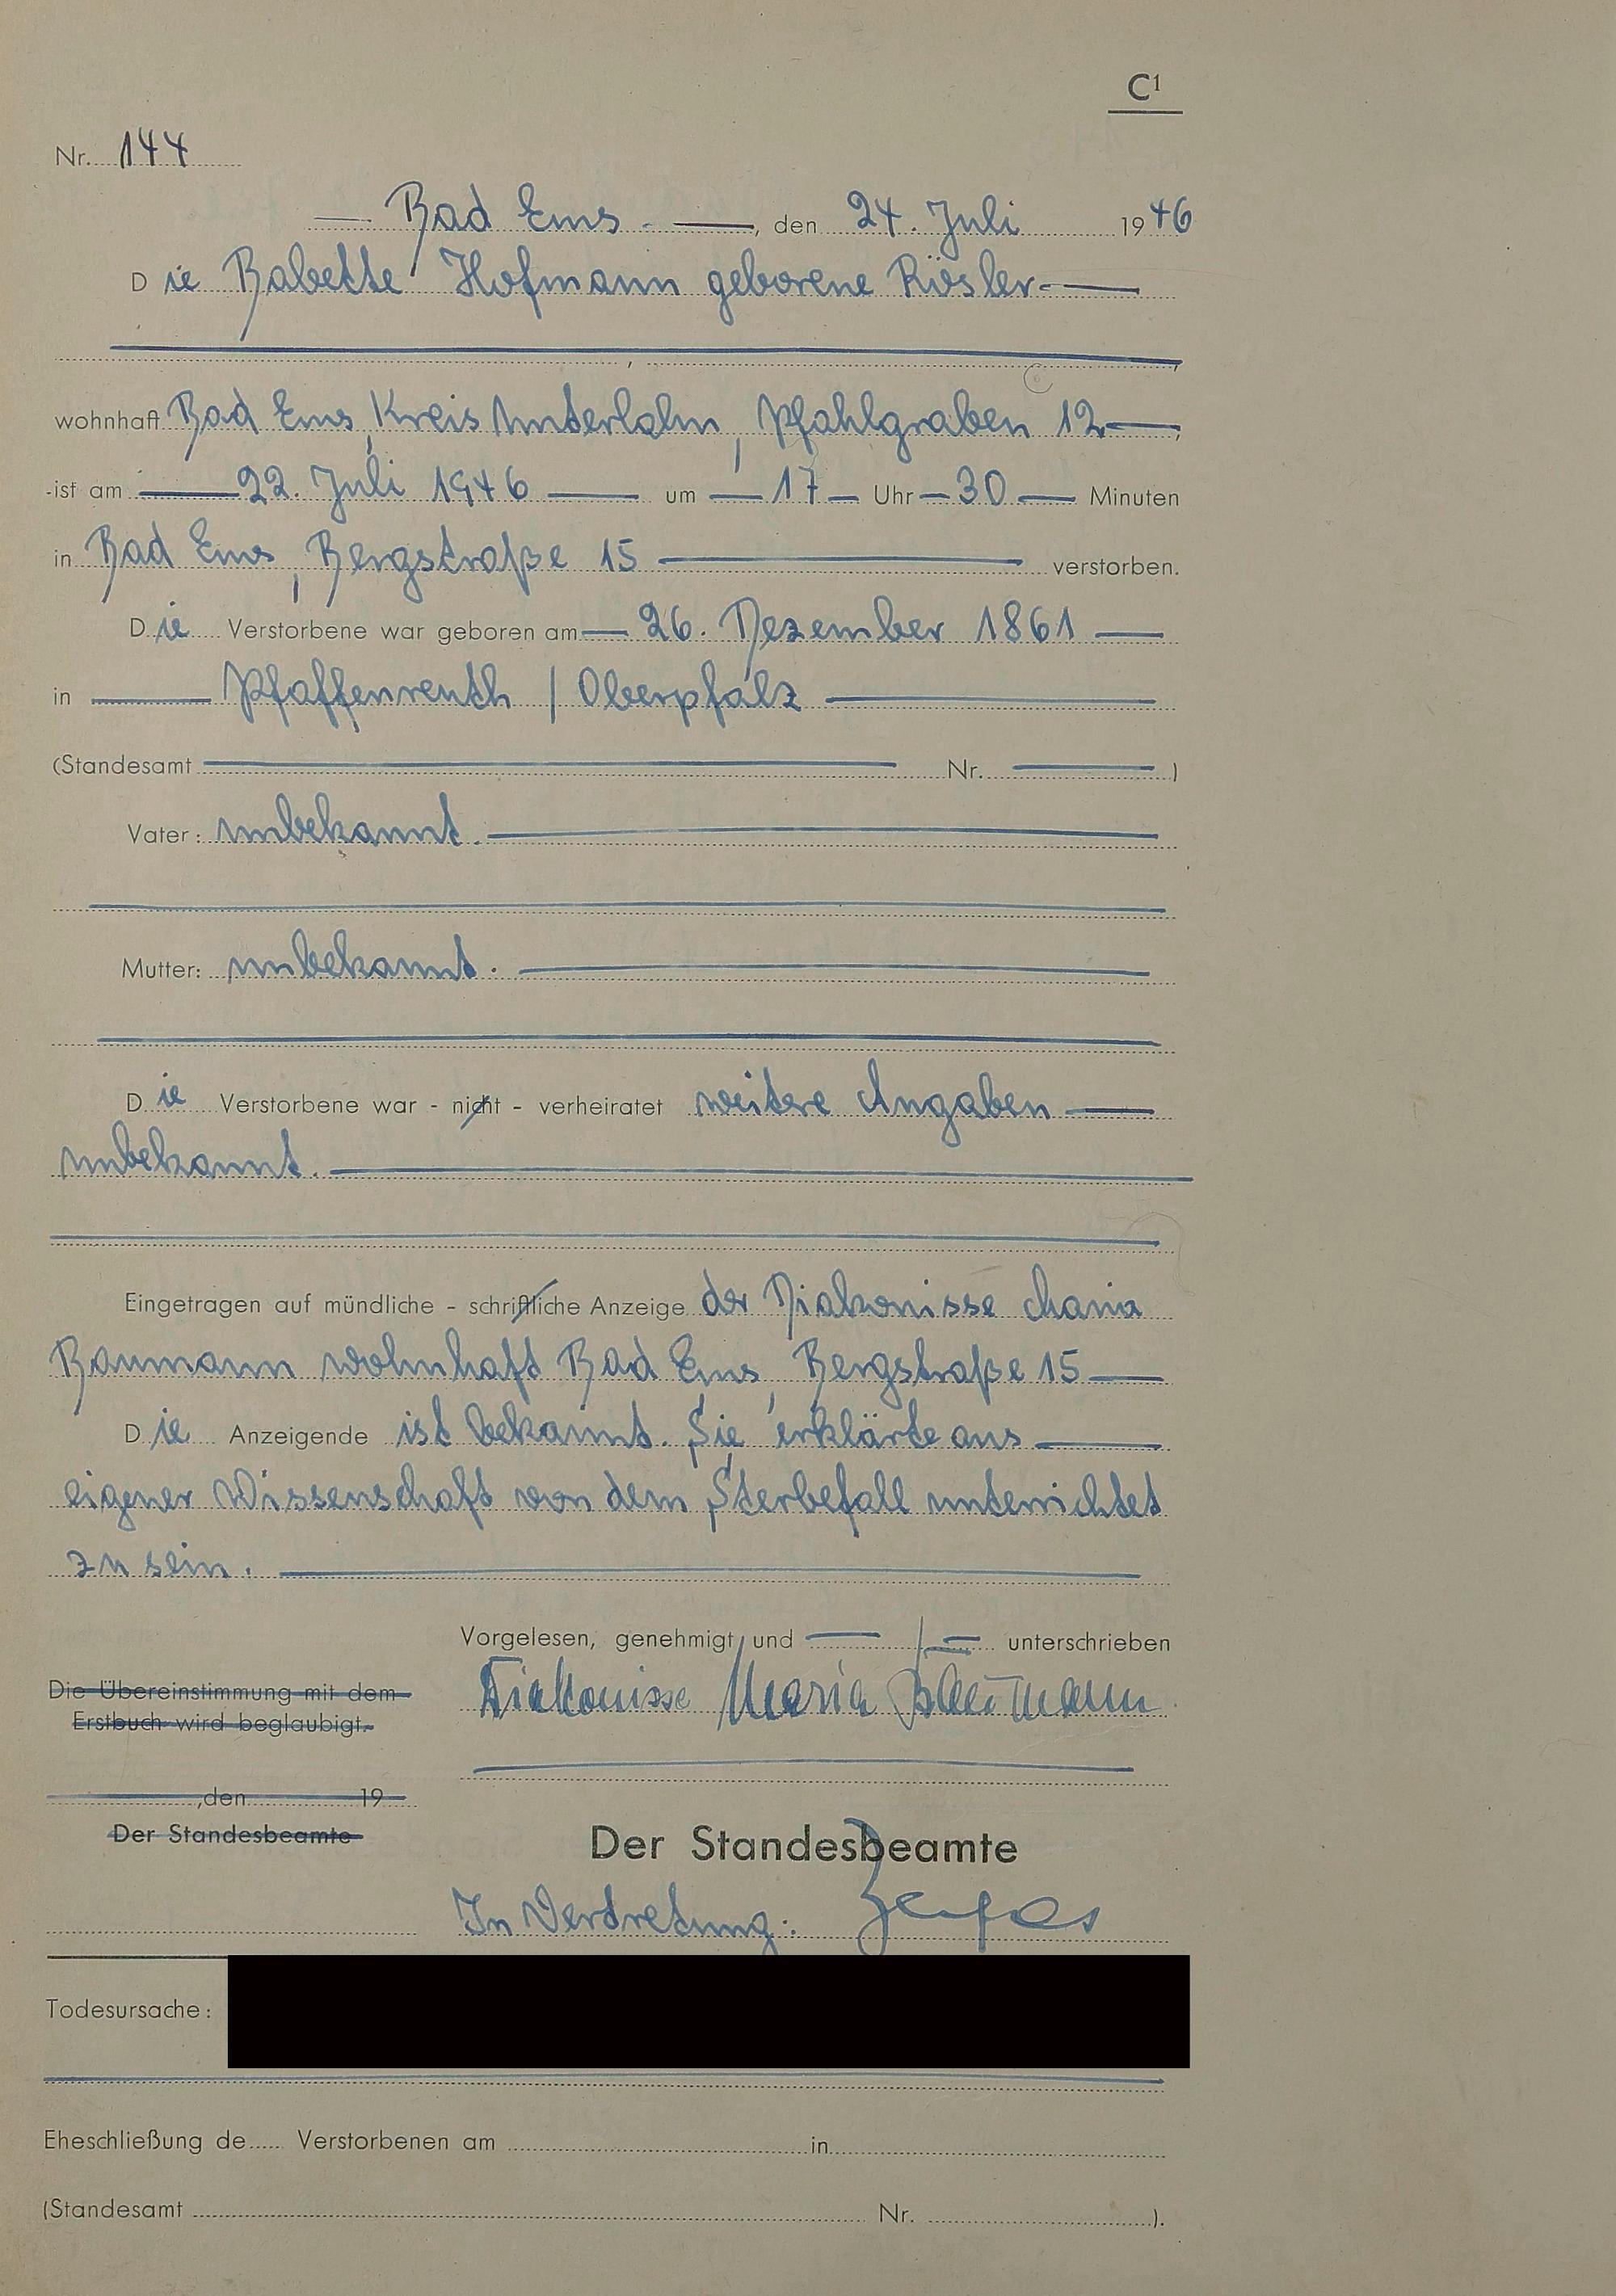 C1
Nr. 144
Bad Ems. , den 24. Juli 1946
Die Babette Hofmann geborene Rösler
wohnhaft Bad Ems, Kreis Unterlahn, Pfahlgraben 12
ist am 22. Juli 1946 um 17 Uhr 30 Minuten
in Bad Ems, Bergstraße 15 verstorben.
Die Verstorbene war geboren am 26. Dezember 1861
in Pfaffenreuth / Oberpfalz
(Standesamt Nr. )
Vater: unbekannt.
Mutter: unbekannt.
Die Verstorbene war - nicht - verheiratet weitere Angaben
unbekannt.
Eingetragen auf mündliche - schriftliche Anzeige der Diakonisse Maria
Baumann wohnhaft Bad Ems, Bergstraße 15
Die Anzeigende ist bekannt. Sie erklärte aus
eigener Wissenschaft von dem Sterbefall unterrichtet
zu sein.
Vorgelesen, genehmigt und unterschrieben
Diakonisse Maria Baumann
Die Übereinstimmung mit dem
Erstbuch wird beglaubigt.
, den 19
Der Standesbeamte
Der Standesbeamte
In Vertretung:
Todesursache:
Eheschließung de Verstorbenen am in
(Standesamt Nr. ).